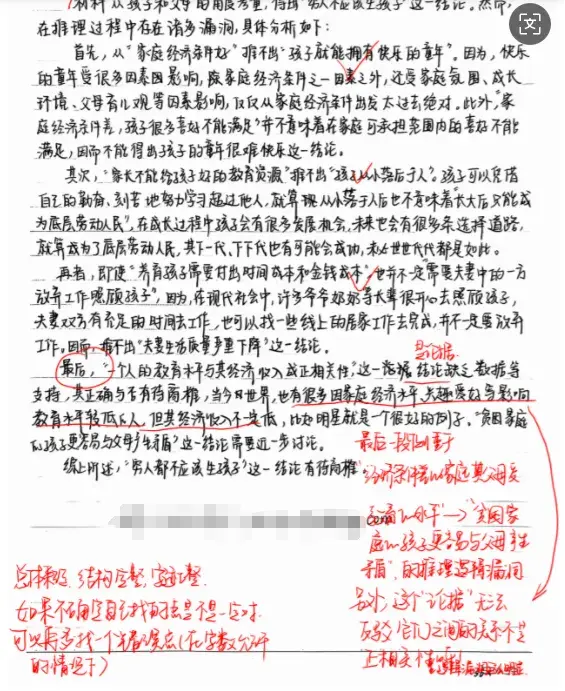 材料从孩子和父母的角度考量，得出"穷人不应该生孩子"这一结论。然而，
在推理过程中存在诸多漏洞，具体分析如下：
首先，从"家庭经济条件好"推不出"孩子就能拥有快乐的童年"。因为，快乐
的童年受很多因素因影响，除家庭经济条件这一因素之外，还受家庭氛围、成长
环境、父母育儿观等因素影响，仅仅从家庭经济条件出发太过去绝对。此外，"家
庭经济条件差，孩子很多喜好不能满足"并不意味着在家庭可承担范围内的喜好不能
满足，因而不能得出孩子的童年很难快乐这一结论。
其次，"家长不能给孩子好的教育资源"推不出"孩子从小落后于人"。孩子可以凭借
自己的勤奋、刻苦地努力学习超过他人，就算现从小落于人后也不意味着"长大后只能成
为底层劳动人民"，在成长过程中孩子会有很多发展机会，未来也会有很多条选择道路，
就算成为了底层劳动人民，其下一代、下下代也有可能会成功，未必世世代代都是如此。
再者，即使"养育孩子需要付出时间成本和金钱成本"，也并不是"需要夫妻中的一方
放弃工作照顾孩子"，因为，在现代社会中，许多爷爷奶奶等长辈很开心去照顾孩子，
夫妻双方有充足的时间去工作，也可以找一些线上的居家工作去完成，并不一定要放弃
工作。因而推不出"夫妻生活质量严重下降"这一结论。
是论据
最后，"一个人的教育水平与其经济收入成正相关性"这一 结论缺乏数据等
支持，其正确与否有待商榷，当今世界，也有很多因家庭经济水平、兴趣爱好等影响
教育水平较低的人，但其经济收入不一定低，比如明星就是一个很好的例子。"贫困家庭
的孩子更容易与父母产生矛盾"这一结论需要进一步讨论。
综上所述，"穷人都不应该生孩子"这一结论有待商榷。
最后一段侧重于
"经济条件差的家庭其母受
教育的水平"→"贫困家
庭的孩子更容易与父母产生
矛盾"的推理逻辑漏洞
另外，这个"论据"无法
反驳它们之间的关系不是
正相关
com
总体来说，结构完整，字迹工整
如果不确定自己找的点是不是一定对
可以再多找一个 (在字数允许
的情况下)